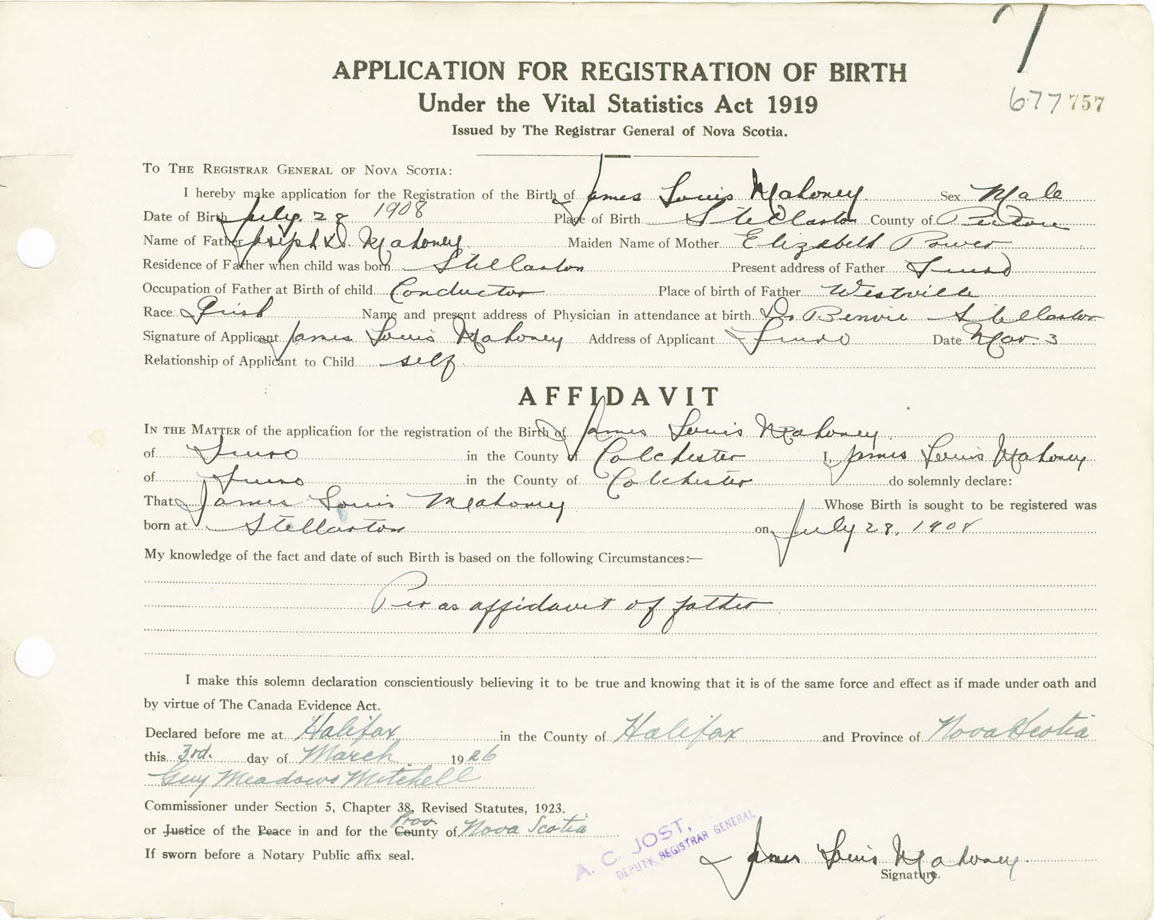 7
677757
APPLICATION FOR REGISTRATION OF BIRTH
Under the Vital Statistics Act 1919
Issued by The Registrar General of Nova Scotia.
TO THE REGISTRAR GENERAL OF NOVA SCOTIA:
I hereby make application for the Registration of the Birth of James Louis Mahoney Sex Male
Date of Birth July 28 1908 Place of Birth Stellarton County of Pictou
Name of Father Joseph D. Mahoney Maiden Name of Mother Elizabeth Power
Residence of Father when child was born Stellarton Present address of Father Truro
Occupation of Father at Birth of child Conductor Place of birth of Father Westville
Race Irish Name and present address of Physician in attendance at birth Dr Benvie Stellarton
Signature of Applicant James Louis Mahoney Address of Applicant Truro Date Mar. 3
Relationship of Applicant to Child self.
AFFIDAVIT
IN THE MATTER of the application for the registration of the Birth of James Louis Mahoney
of Truro in the County of Colchester I, James Louis Mahoney
of Truro in the County of Colchester do solemnly declare:
That James Louis Mahoney Whose Birth is sought to be registered was
born at Stellarton on July 28, 1908
My knowledge of the fact and date of such Birth is based on the following Circumstances:—
Per as affidavit of father
I make this solemn declaration conscientiously believing it to be true and knowing that it is of the same force and effect as if made under oath and
by virtue of The Canada Evidence Act.
Declared before me at Halifax in the County of Halifax and Province of Nova Scotia
this 3rd. day of March 1926
Guy Meadows Mitchell
Commissioner under Section 5, Chapter 38, Revised Statutes, 1923.
Prov.
or Justice of the Peace in and for the County of Nova Scotia
If sworn before a Notary Public affix seal.
A. C. JOST,
DEPUTY REGISTRAR GENERAL
James Louis Mahoney
Signature.